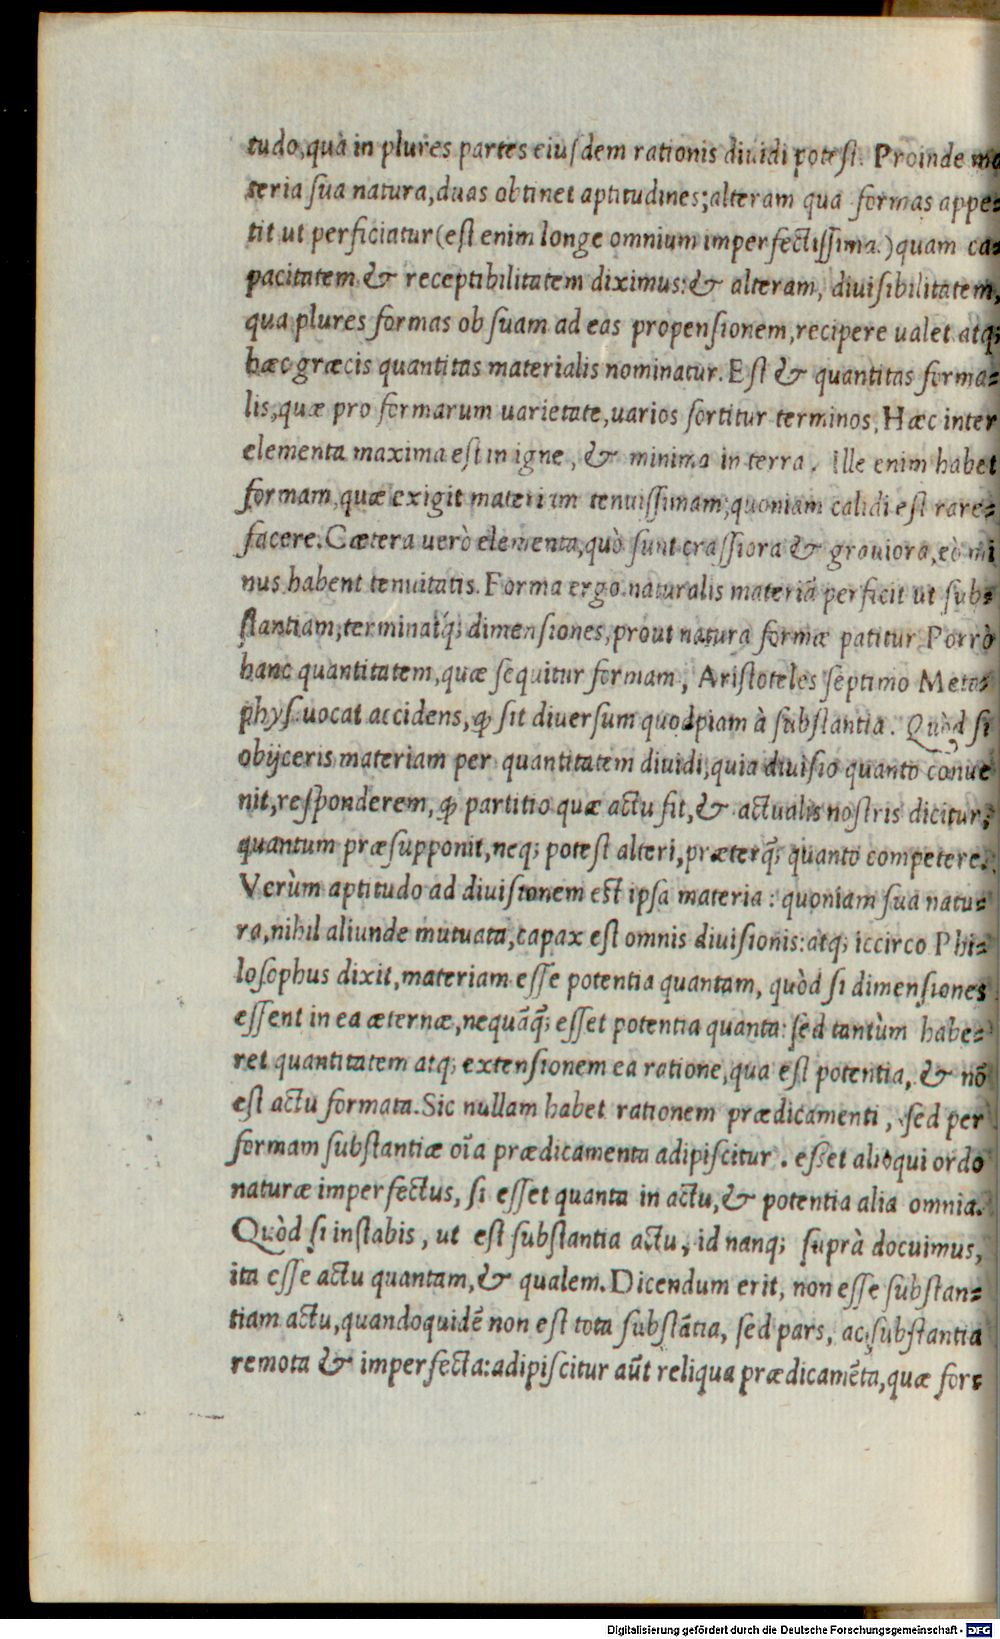 tudo, qua in plures partes eiusdem rationis diuidi potest. Proinde ma
teria sua natura, duas obtinet aptitudines; alteram qua formas appe-
tit ut perficiatur (est enim longe omnium imperfectissima.) quam ca-
pacitatem & receptibilitatem diximus: & alteram, diuisibilitatem,
qua plures formas ob suam ad eas propensionem, recipere ualet atq;
hæc græcis quantitas materialis nominatur. Est & quantitas forma-
lis, quæ pro formarum uarietate, uarios sortitur terminos, Hæc inter
elementa maxima est in igne, & minima in terra. Ille enim habet
formam, quæ exigit materiam tenuissimam; quoniam calidi est rare-
facere. Cætera uerò elementa, quò sunt crassiora & grauiora, eò mi
nus habent tenuitatis. Forma ergo naturalis materiā perficit ut sub-
stantiam; terminatq́; dimensiones, prout natura formæ patitur Porrò
hanc quantitatem, quæ sequitur formam, Aristoteles septimo Meta-
phys. uocat accidens, ꝙ sit diuersum quodpiam à substantia. Quòd si
obijceris materiam per quantitatem diuidi, quia diuisio quanto conue
nit, responderem, ꝙ partitio quæ actu fit, & actualis nostris dicitur,
quantum præsupponit, neq; potest alteri, præterq̃; quanto competere.
Verùm aptitudo ad diuisionem est ipsa materia: quoniam sua natu-
ra, nihil aliunde mutuata, capax est omnis diuisionis: atq; iccirco Phi-
losophus dixit, materiam esse potentia quantam, quòd si dimensiones
essent in ea æternæ, nequāq̃; esset potentia quanta: sed tantùm habe-
ret quantitatem atq; extensionem ea ratione, qua est potentia, & nō
est actu formata. Sic nullam habet rationem prædicamenti, sed per
formam substantiæ oīa prædicamenta adipiscitur. esset alioqui ordo
naturæ imperfectus, si esset quanta in actu, & potentia alia omnia.
Quòd si instabis, ut est substantia actu, id nanq; suprà docuimus,
ita esse actu quantam, & qualem. Dicendum erit, non esse substan-
tiam actu, quandoquidē non est tota substātia, sed pars, acꝫ substantia
remota & imperfecta: adipiscitur aūt reliqua prædicamēta, quæ for-
Digitalisierung gefördert durch die Deutsche Forschungsgemeinschaft - DFG